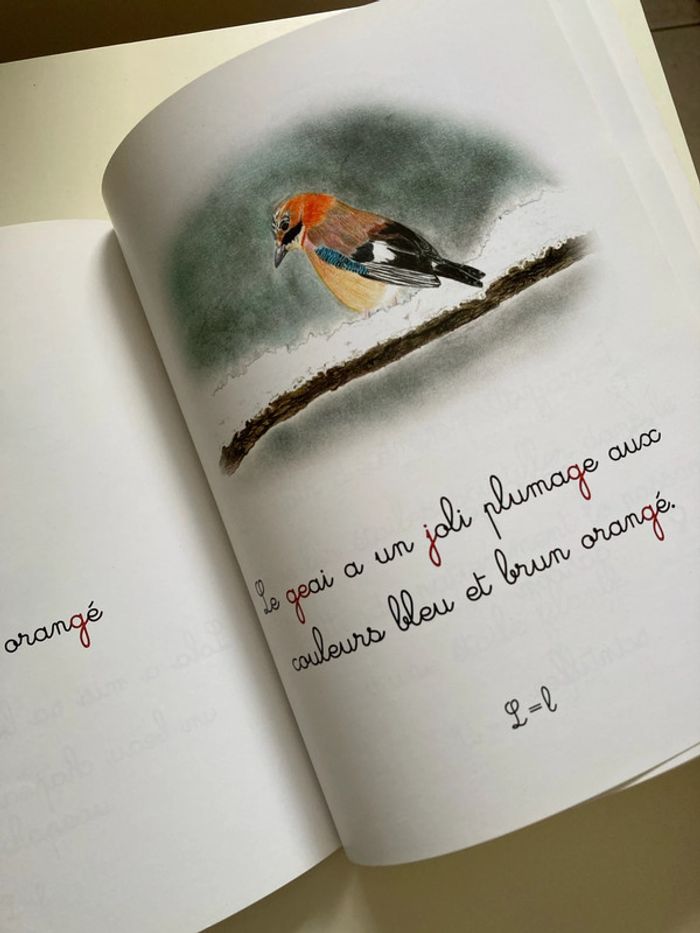 orangé
Le geai a un joli plumage aux
couleurs bleu et brun orangé.
L=l